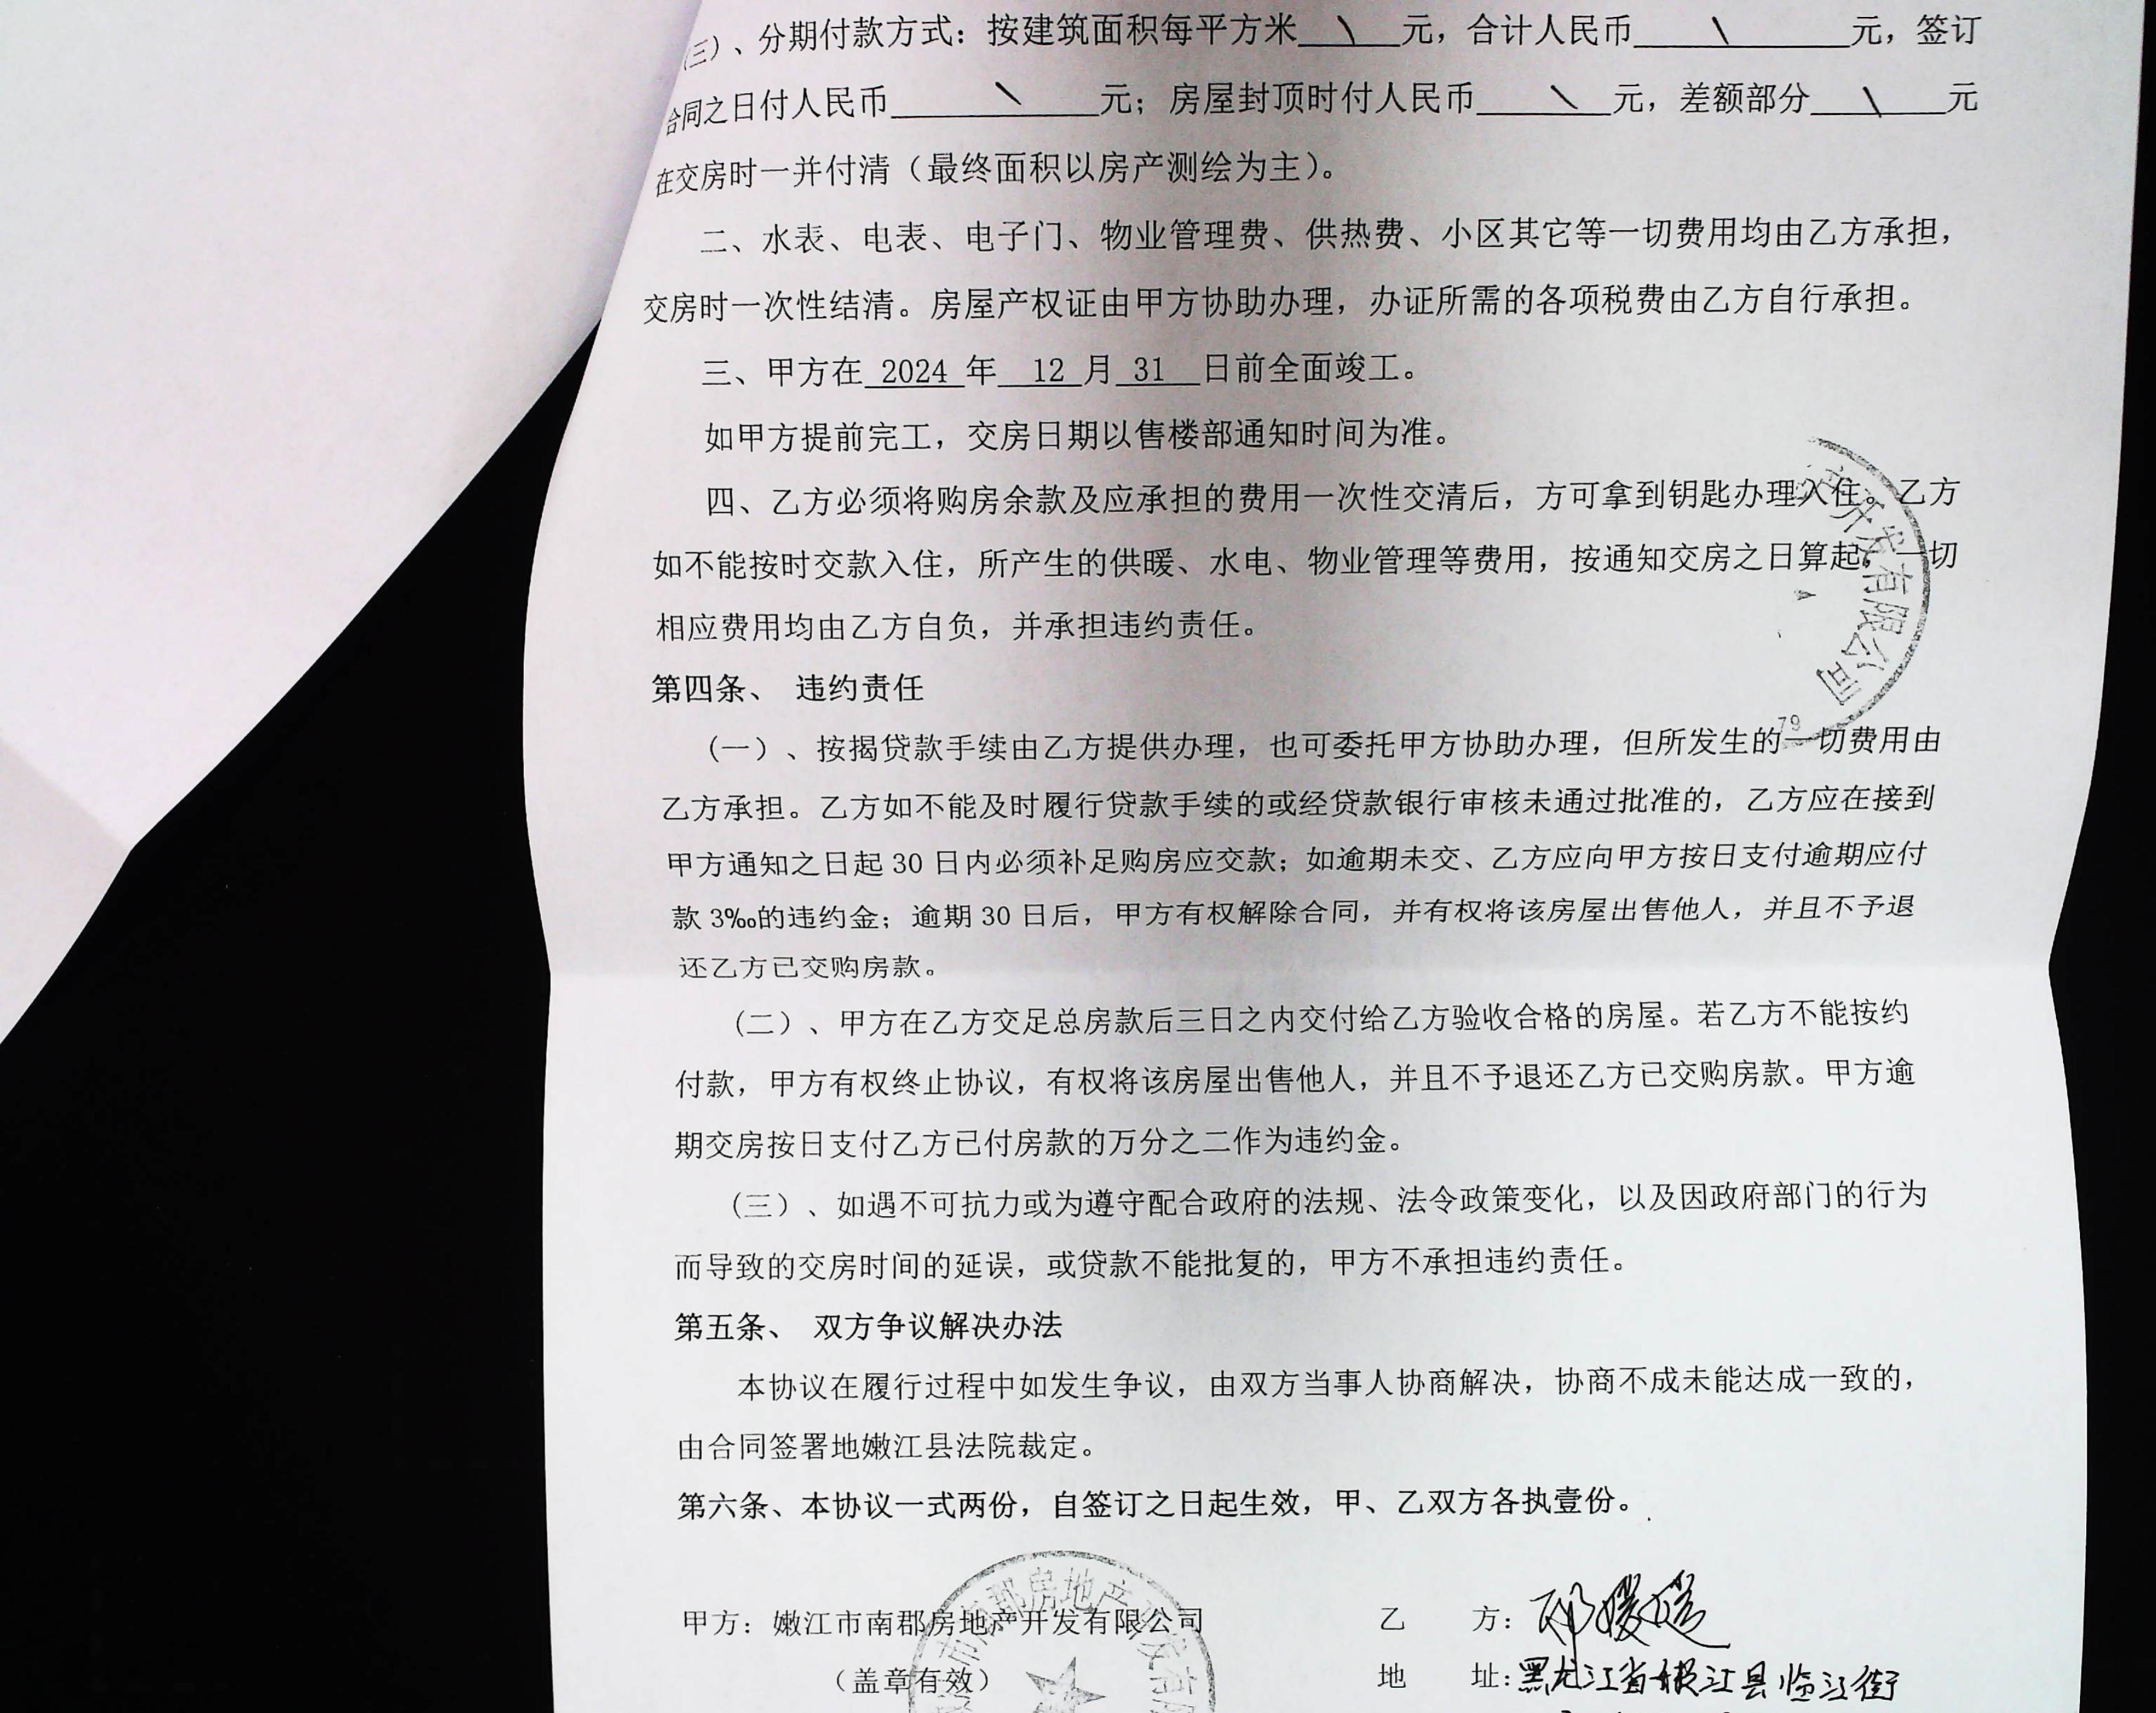 （三）、分期付款方式：按建筑面积每平方米 \ 元，合计人民币 \ 元，签订
合同之日付人民币 \ 元；房屋封顶时付人民币 \ 元，差额部分 \ 元
在交房时一并付清（最终面积以房产测绘为主）。
二、水表、电表、电子门、物业管理费、供热费、小区其它等一切费用均由乙方承担，
交房时一次性结清。房屋产权证由甲方协助办理，办证所需的各项税费由乙方自行承担。
三、甲方在 2024 年 12 月 31 日前全面竣工。
如甲方提前完工，交房日期以售楼部通知时间为准。
四、乙方必须将购房余款及应承担的费用一次性交清后，方可拿到钥匙办理入住。乙方
如不能按时交款入住，所产生的供暖、水电、物业管理等费用，按通知交房之日算起，一切
相应费用均由乙方自负，并承担违约责任。
开发有限公司
79
第四条、 违约责任
（一）、按揭贷款手续由乙方提供办理，也可委托甲方协助办理，但所发生的一切费用由
乙方承担。乙方如不能及时履行贷款手续的或经贷款银行审核未通过批准的，乙方应在接到
甲方通知之日起 30 日内必须补足购房应交款；如逾期未交、乙方应向甲方按日支付逾期应付
款 3‰的违约金；逾期 30 日后，甲方有权解除合同，并有权将该房屋出售他人，并且不予退
还乙方已交购房款。
（二）、甲方在乙方交足总房款后三日之内交付给乙方验收合格的房屋。若乙方不能按约
付款，甲方有权终止协议，有权将该房屋出售他人，并且不予退还乙方已交购房款。甲方逾
期交房按日支付乙方已付房款的万分之二作为违约金。
（三）、如遇不可抗力或为遵守配合政府的法规、法令政策变化，以及因政府部门的行为
而导致的交房时间的延误，或贷款不能批复的，甲方不承担违约责任。
第五条、 双方争议解决办法
本协议在履行过程中如发生争议，由双方当事人协商解决，协商不成未能达成一致的，
由合同签署地嫩江县法院裁定。
第六条、本协议一式两份，自签订之日起生效，甲、乙双方各执壹份。
甲方：嫩江市南郡房地产开发有限公司 乙 方：
（盖章有效） 地 址：黑龙江省嫩江县临江街
市南郡房地产开发有限